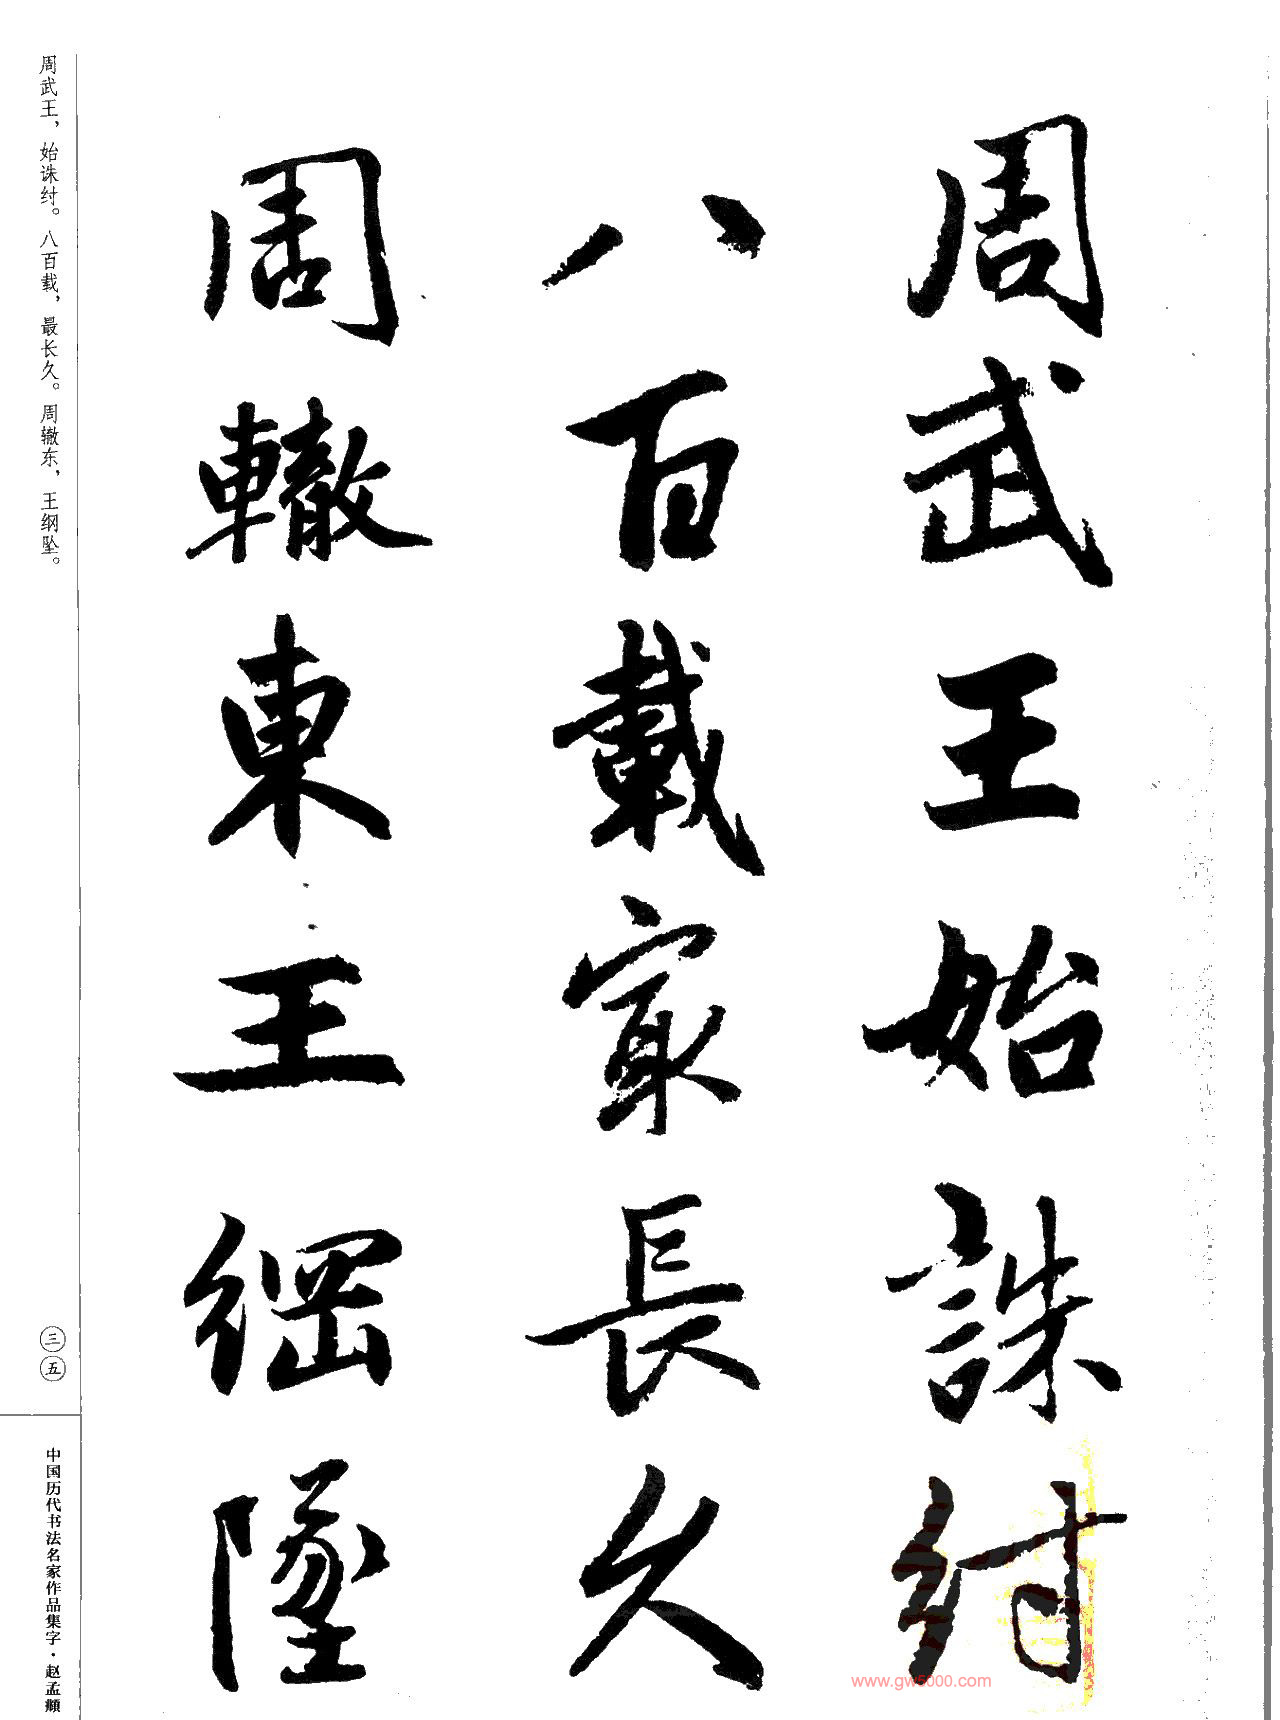 周武王始誅紂
八百載冣長久
周轍東王綱墜
周武王，始诛纣。八百载，最长久。周辙东，王纲坠。
三五
中国历代书法名家作品集字·赵孟頫
www.gw5000.com